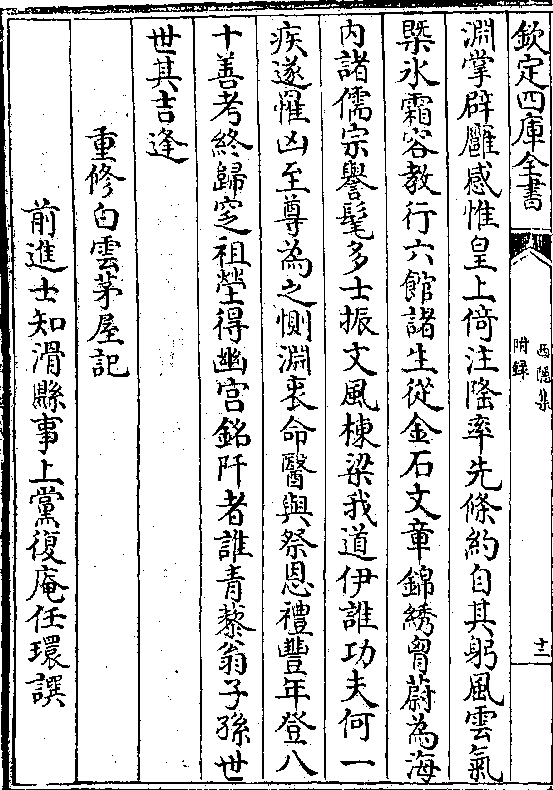 欽定四庫全書
西隱集
附錄
十二
淵掌辟雝感惟皇上倚注隆率先條約自其躬風雲氣
槩氷霜容教行六館諸生從金石文章錦綉胷蔚為海
内諸儒宗譽髦多士振文風棟梁我道伊誰功夫何一
疾遂罹凶至尊為之惻淵衷命醫與祭恩禮豐年登八
十善考終歸窆祖塋得幽宫銘阡者誰青藜翁子孫世
世其吉逢
重修白雲茅屋記
前進士知滑縣事上黨復庵任環譔